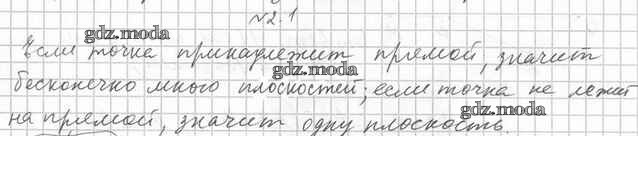 №2.1
gdz.moda
Если точка принадлежит прямой, значит
gdz.moda
бесконечно много плоскостей; если точка не лежит
gdz.moda
на прямой, значит одну плоскость.